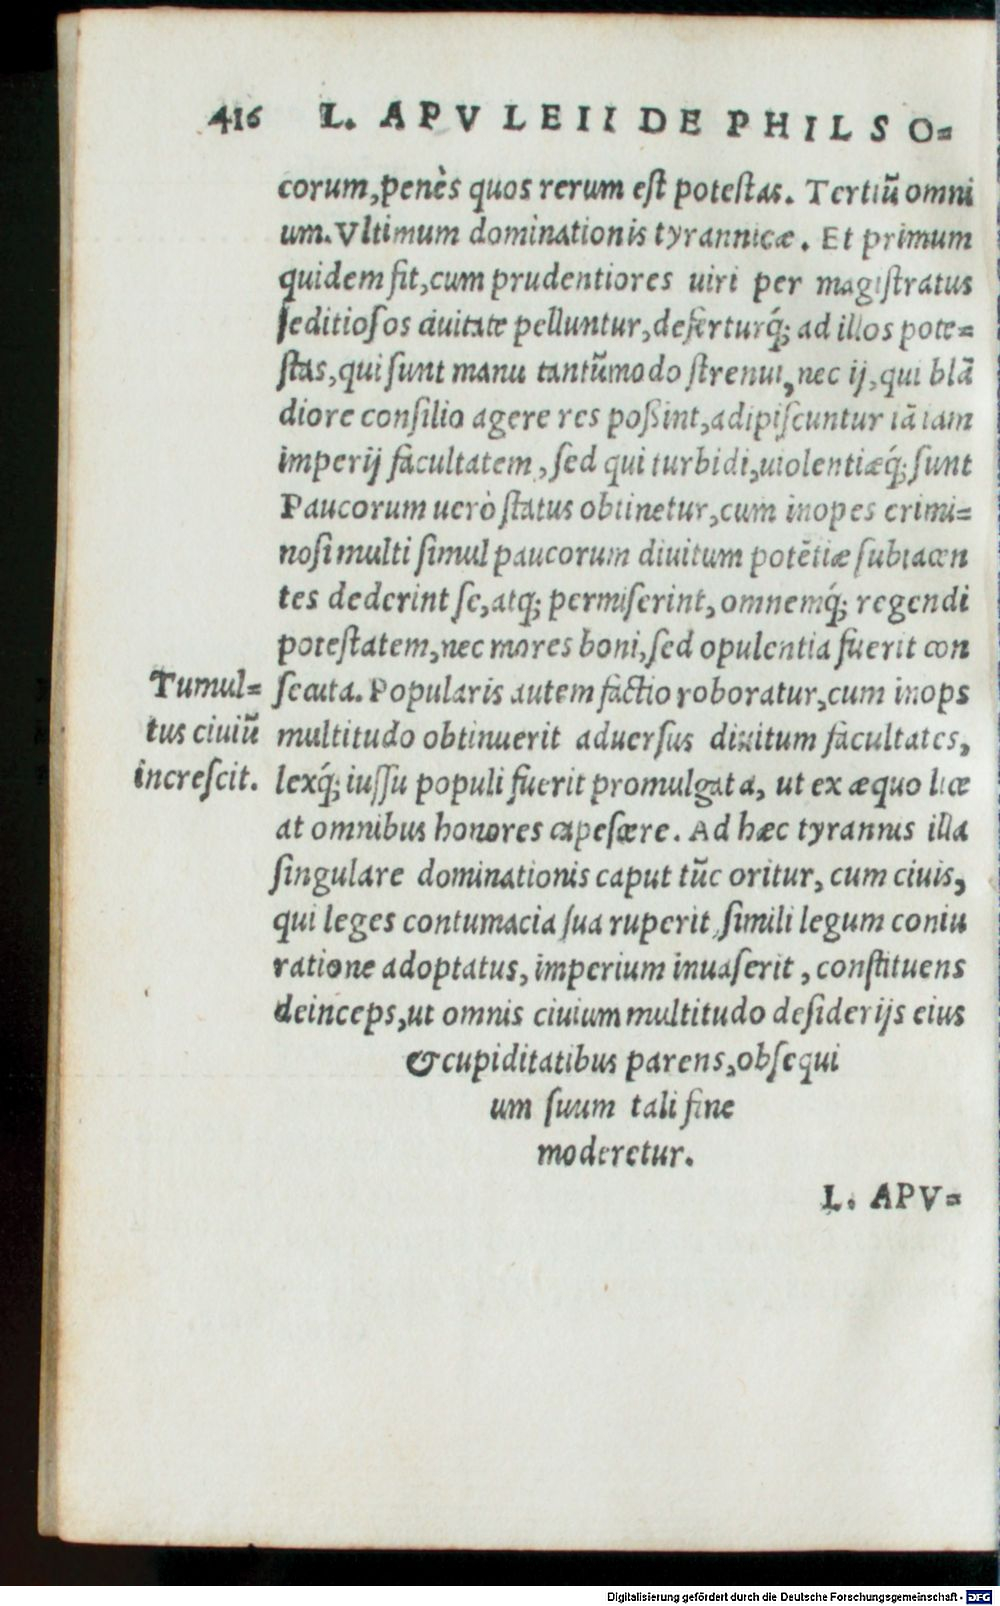 416 L. APVLEII DE PHILSO=
corum, penès quos rerum est potestas. Tertiũ omni
um. Vltimum dominationis tyrannicæ. Et primum
quidem fit, cum prudentiores uiri per magistratus
seditiosos ciuitate pelluntur, deferturq́; ad illos pote=
stas, qui sunt manu tantũmodo strenui, nec ij, qui blã
diore consilio agere res possint, adipiscuntur iã iam
imperij facultatem, sed qui turbidi, uiolentiæq́; sunt
Paucorum uerò status obtinetur, cum inopes crimi=
nosi multi simul paucorum diuitum potẽtiæ subiacen
tes dederint se, atq; permiserint, omnemq́; regendi
potestatem, nec mores boni, sed opulentia fuerit con
secuta. Popularis autem factio roboratur, cum inops
multitudo obtinuerit aduersus diuitum facultates,
lexq́; iussu populi fuerit promulgata, ut ex æquo lice
at omnibus honores capescere. Ad hæc tyrannis illa
singulare dominationis caput tũc oritur, cum ciuis,
qui leges contumacia sua ruperit, simili legum coniu
ratione adoptatus, imperium inuaserit, constituens
deinceps, ut omnis ciuium multitudo desiderijs eius
& cupiditatibus parens, obsequi
um suum tali fine
moderetur.
Tumul=
tus ciuiũ
increscit.
L. APV=
Digitalisierung gefördert durch die Deutsche Forschungsgemeinschaft - DFG